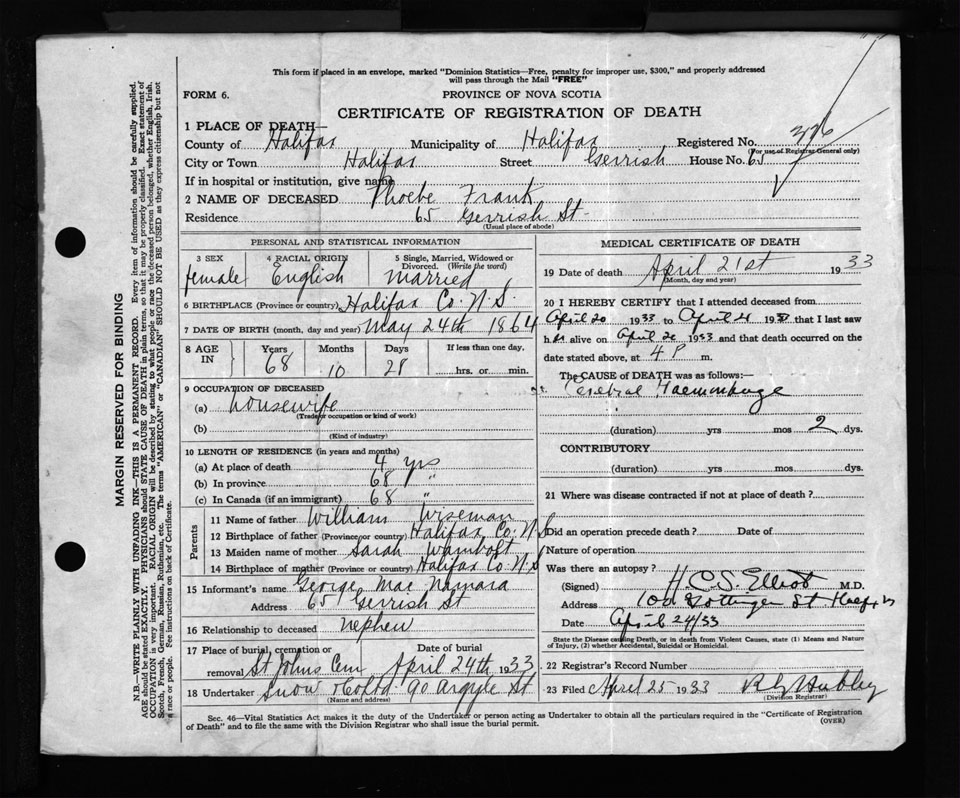 This form if placed in an envelope, marked "Dominion Statistics—Free, penalty for improper use, $300," and properly addressed
will pass through the Mail "FREE"
FORM 6.
PROVINCE OF NOVA SCOTIA
CERTIFICATE OF REGISTRATION OF DEATH
1 PLACE OF DEATH—
County of Halifax Municipality of Halifax Registered No. 376
(For use of Registrar General only)
City or Town Halifax Street Gerrish House No. 65
If in hospital or institution, give name
2 NAME OF DECEASED Phoebe Frank
Residence 65 Gerrish St
(Usual place of abode)
PERSONAL AND STATISTICAL INFORMATION
3 SEX female
4 RACIAL ORIGIN English
5 Single, Married, Widowed or
Divorced. (Write the word)
Married
6 BIRTHPLACE (Province or country) Halifax Co. N.S.
7 DATE OF BIRTH (month, day and year) May 24th 1864
8 AGE IN
Years Months Days If less than one day.
68 10 28 hrs. or min.
9 OCCUPATION OF DECEASED
(a) Housewife
(Trade or occupation or kind of work)
(b)
(Kind of industry)
10 LENGTH OF RESIDENCE (in years and months)
(a) At place of death 4 yrs
(b) In province 68 "
(c) In Canada (if an immigrant) 68 "
Parents
11 Name of father William Wiseman
12 Birthplace of father (Province or country) Halifax Co. N.S
13 Maiden name of mother Sarah Wambolt
14 Birthplace of mother (Province or country) Halifax Co. N.S
15 Informant's name George Mac Namara
Address 65 Gerrish St
16 Relationship to deceased nephew
17 Place of burial, cremation or
removal St Johns Cem
Date of burial
April 24th 1933
18 Undertaker Snow & Co Ltd. 90 Argyle St
(Name and address)
MEDICAL CERTIFICATE OF DEATH
19 Date of death April 21st 1933
(Month, day and year)
20 I HEREBY CERTIFY that I attended deceased from
April 20 1933 to April 21 19 that I last saw
her alive on April 20 1933 and that death occurred on the
date stated above, at 4 P m.
The CAUSE OF DEATH was as follows:—
Cerebral Haemorrhage
(duration) yrs mos 2 dys.
CONTRIBUTORY
(duration) yrs mos dys.
21 Where was disease contracted if not at place of death?
Did an operation precede death? Date of
Nature of operation
Was there an autopsy?
(Signed) H.C.S. Elliot M.D.
Address Gottingen St. Halifax
Date April 24/33
State the Disease causing Death, or in death from Violent Causes, state (1) Means and Nature
of Injury, (2) whether Accidental, Suicidal or Homicidal.
22 Registrar's Record Number
23 Filed April 25 1933 Hubley
(Division Registrar)
Sec. 46—Vital Statistics Act makes it the duty of the Undertaker or person acting as Undertaker to obtain all the particulars required in the "Certificate of Registration
of Death" and to file the same with the Division Registrar who shall issue the burial permit.
(OVER)
MARGIN RESERVED FOR BINDING
N.B.—WRITE PLAINLY WITH UNFADING INK—THIS IS A PERMANENT RECORD. Every item of information should be carefully supplied.
AGE should be stated EXACTLY. PHYSICIANS should STATE CAUSE OF DEATH in plain terms, so that it may be properly classified. Exact statement of
OCCUPATION is very important. RACIAL ORIGIN will be described by stating to what people or race the deceased person belonged, whether English, Irish,
Scotch, French, German, Russian, Ruthenian, etc. The terms "AMERICAN" or "CANADIAN" SHOULD NOT BE USED as they express citizenship but not
a race or people. See instructions on back of Certificate.